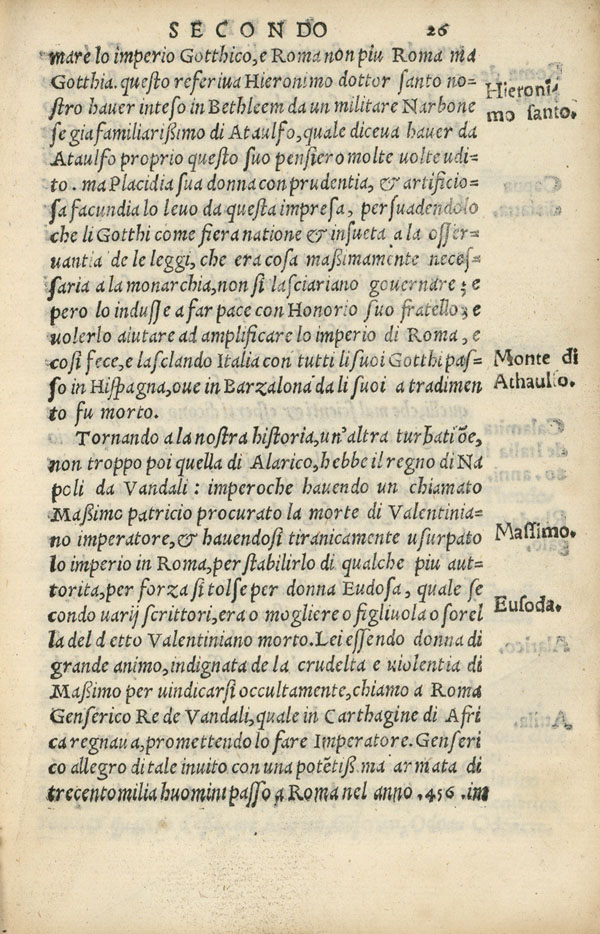 SECONDO 26
mare lo imperio Gotthico, e Roma non piu Roma ma
Gotthia. questo referiua Hieronimo dottor santo no=
stro hauer inteso in Bethleem da un militare Narbone
se gia familiarißimo di Ataulfo, quale diceua hauer da
Ataulfo proprio questo suo pensiero molte uolte udi=
to. ma Placidia sua donna con prudentia, & artificio=
sa facundia lo leuo da questa impresa, persuadendolo
che li Gotthi come fiera natione & insueta a la osser=
uantia de le leggi, che era cosa maßimamente neces=
saria a la monarchia, non si lasciariano gouernare; e
pero lo indusse a far pace con Honorio suo fratello; e
uolerlo aiutare ad amplificare lo imperio di Roma, e
cosi fece, e lasclando Italia con tutti li suoi Gotthi pas=
so in Hispagna, oue in Barzalona da li suoi a tradimen
to fu morto.
Tornando a la nostra historia, un'altra turbatiõe,
non troppo poi quella di Alarico, hebbe il regno di Na
poli da Vandali: imperoche hauendo un chiamato
Maßimo patricio procurato la morte di Valentinia=
no imperatore, & hauendosi tiranicamente usurpato
lo imperio in Roma, per stabilirlo di qualche piu aut=
torita, per forza si tolse per donna Eudosa, quale se
condo uarij scrittori, era o mogliere o figliuola o sorel
la del detto Valentiniano morto. Lei essendo donna di
grande animo, indignata de la crudelta e uiolentia di
Maßimo per uindicarsi occultamente, chiamo a Roma
Genserico Re de Vandali, quale in Carthagine di Afri
ca regnaua, promettendo lo fare Imperatore. Genseri
co allegro di tale inuito con una potẽtiß.ma armata di
trecento milia huomini passo a Roma nel anno .456. im
Hieroni
mo santo.
Monte di
Athaulfo.
Massimo.
Eusoda.